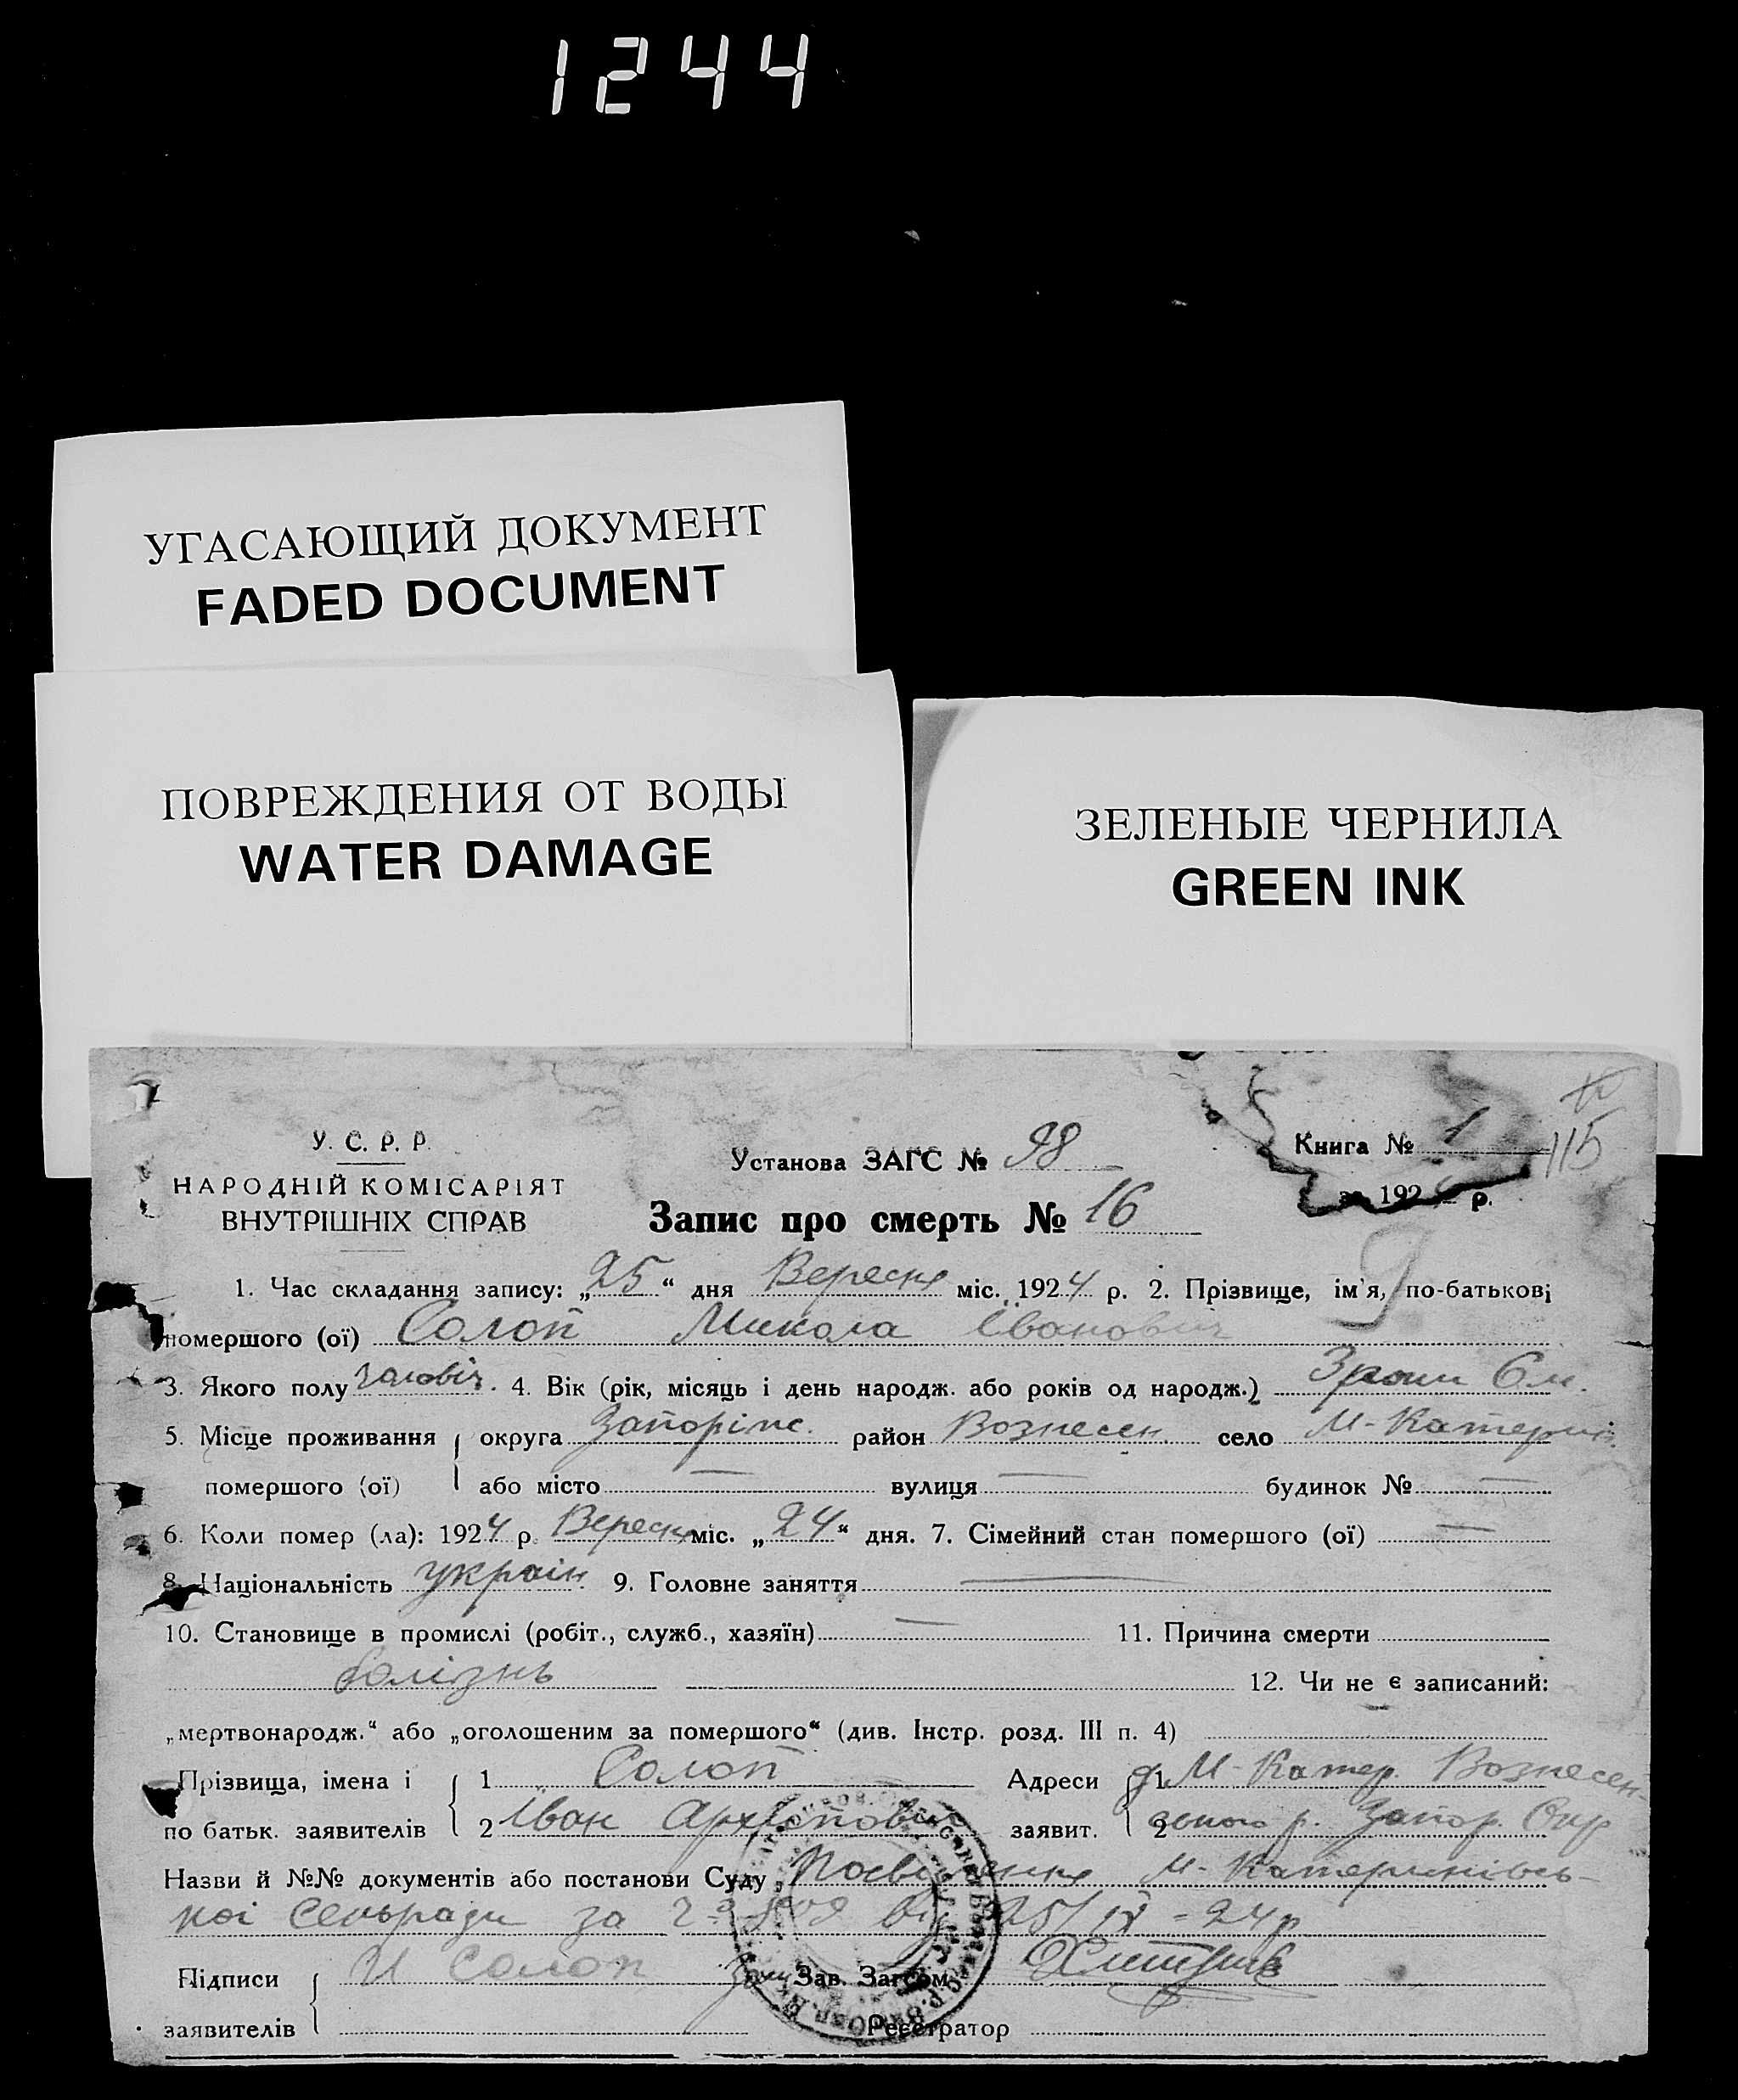 1244
УГАСАЮЩИЙ ДОКУМЕНТ
FADED DOCUMENT
ПОВРЕЖДЕНИЯ ОТ ВОДЫ
WATER DAMAGE
ЗЕЛЕНЫЕ ЧЕРНИЛА
GREEN INK
У. С. Р. Р.
НАРОДНІЙ КОМІСАРІЯТ
ВНУТРІШНІХ СПРАВ
Установа ЗАГС № 98
Запис про смерть № 16
Книга № 1
за 192 р.
115
1. Час складання запису: „25“ дня Вересня міс. 1924 р. 2. Прізвище, ім'я, по-батькові
помершого (ої) Солоп Микола Іванович
3. Якого полу чоловіч. 4. Вік (рік, місяць і день народж. або років од народж.) 3 роки 6 м.
5. Місце проживання округа Запоріж. район Вознесен. село М-Катерин.
помершого (ої) або місто — вулиця — будинок № —
6. Коли помер (ла): 1924 р. Вересня міс. „24“ дня. 7. Сімейний стан помершого (ої) —
8. Національність україн. 9. Головне заняття —
10. Становище в промислі (робіт., служб., хазяїн) — 11. Причина смерти
болізнь 12. Чи не є записаний:
„мертвонародж.“ або „оголошеним за помершого“ (див. Інстр. розд. III п. 4)
Прізвища, імена і 1 Солоп Адреси 1 М-Катер. Вознесен-
по батьк. заявителів 2 Іван Архипович заявит. 2 ського р. Запор. Окр
Назви й №№ документів або постанови Суду Посвідчення М-Катеринівсь-
кої Сельради за від 25/IX-24 р
Підписи И Солоп Зав. Загсом
заявителів Реєстратор